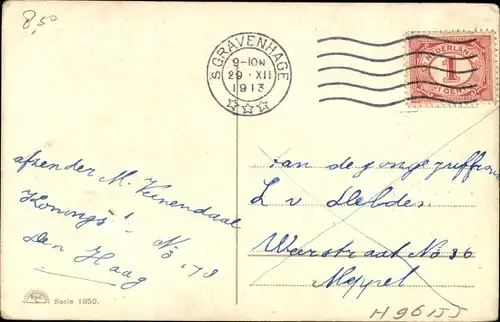 8,50
'S GRAVENHAGE
9-10N
29·XII
1913
NEDERLAND
1
CENT
afzender M. Veenendaal
Konings
No 78
Den Haag
Aan de jongejuffrouw
L v
Weerstraat No 36
Meppel
Serie 1850.
H 96155